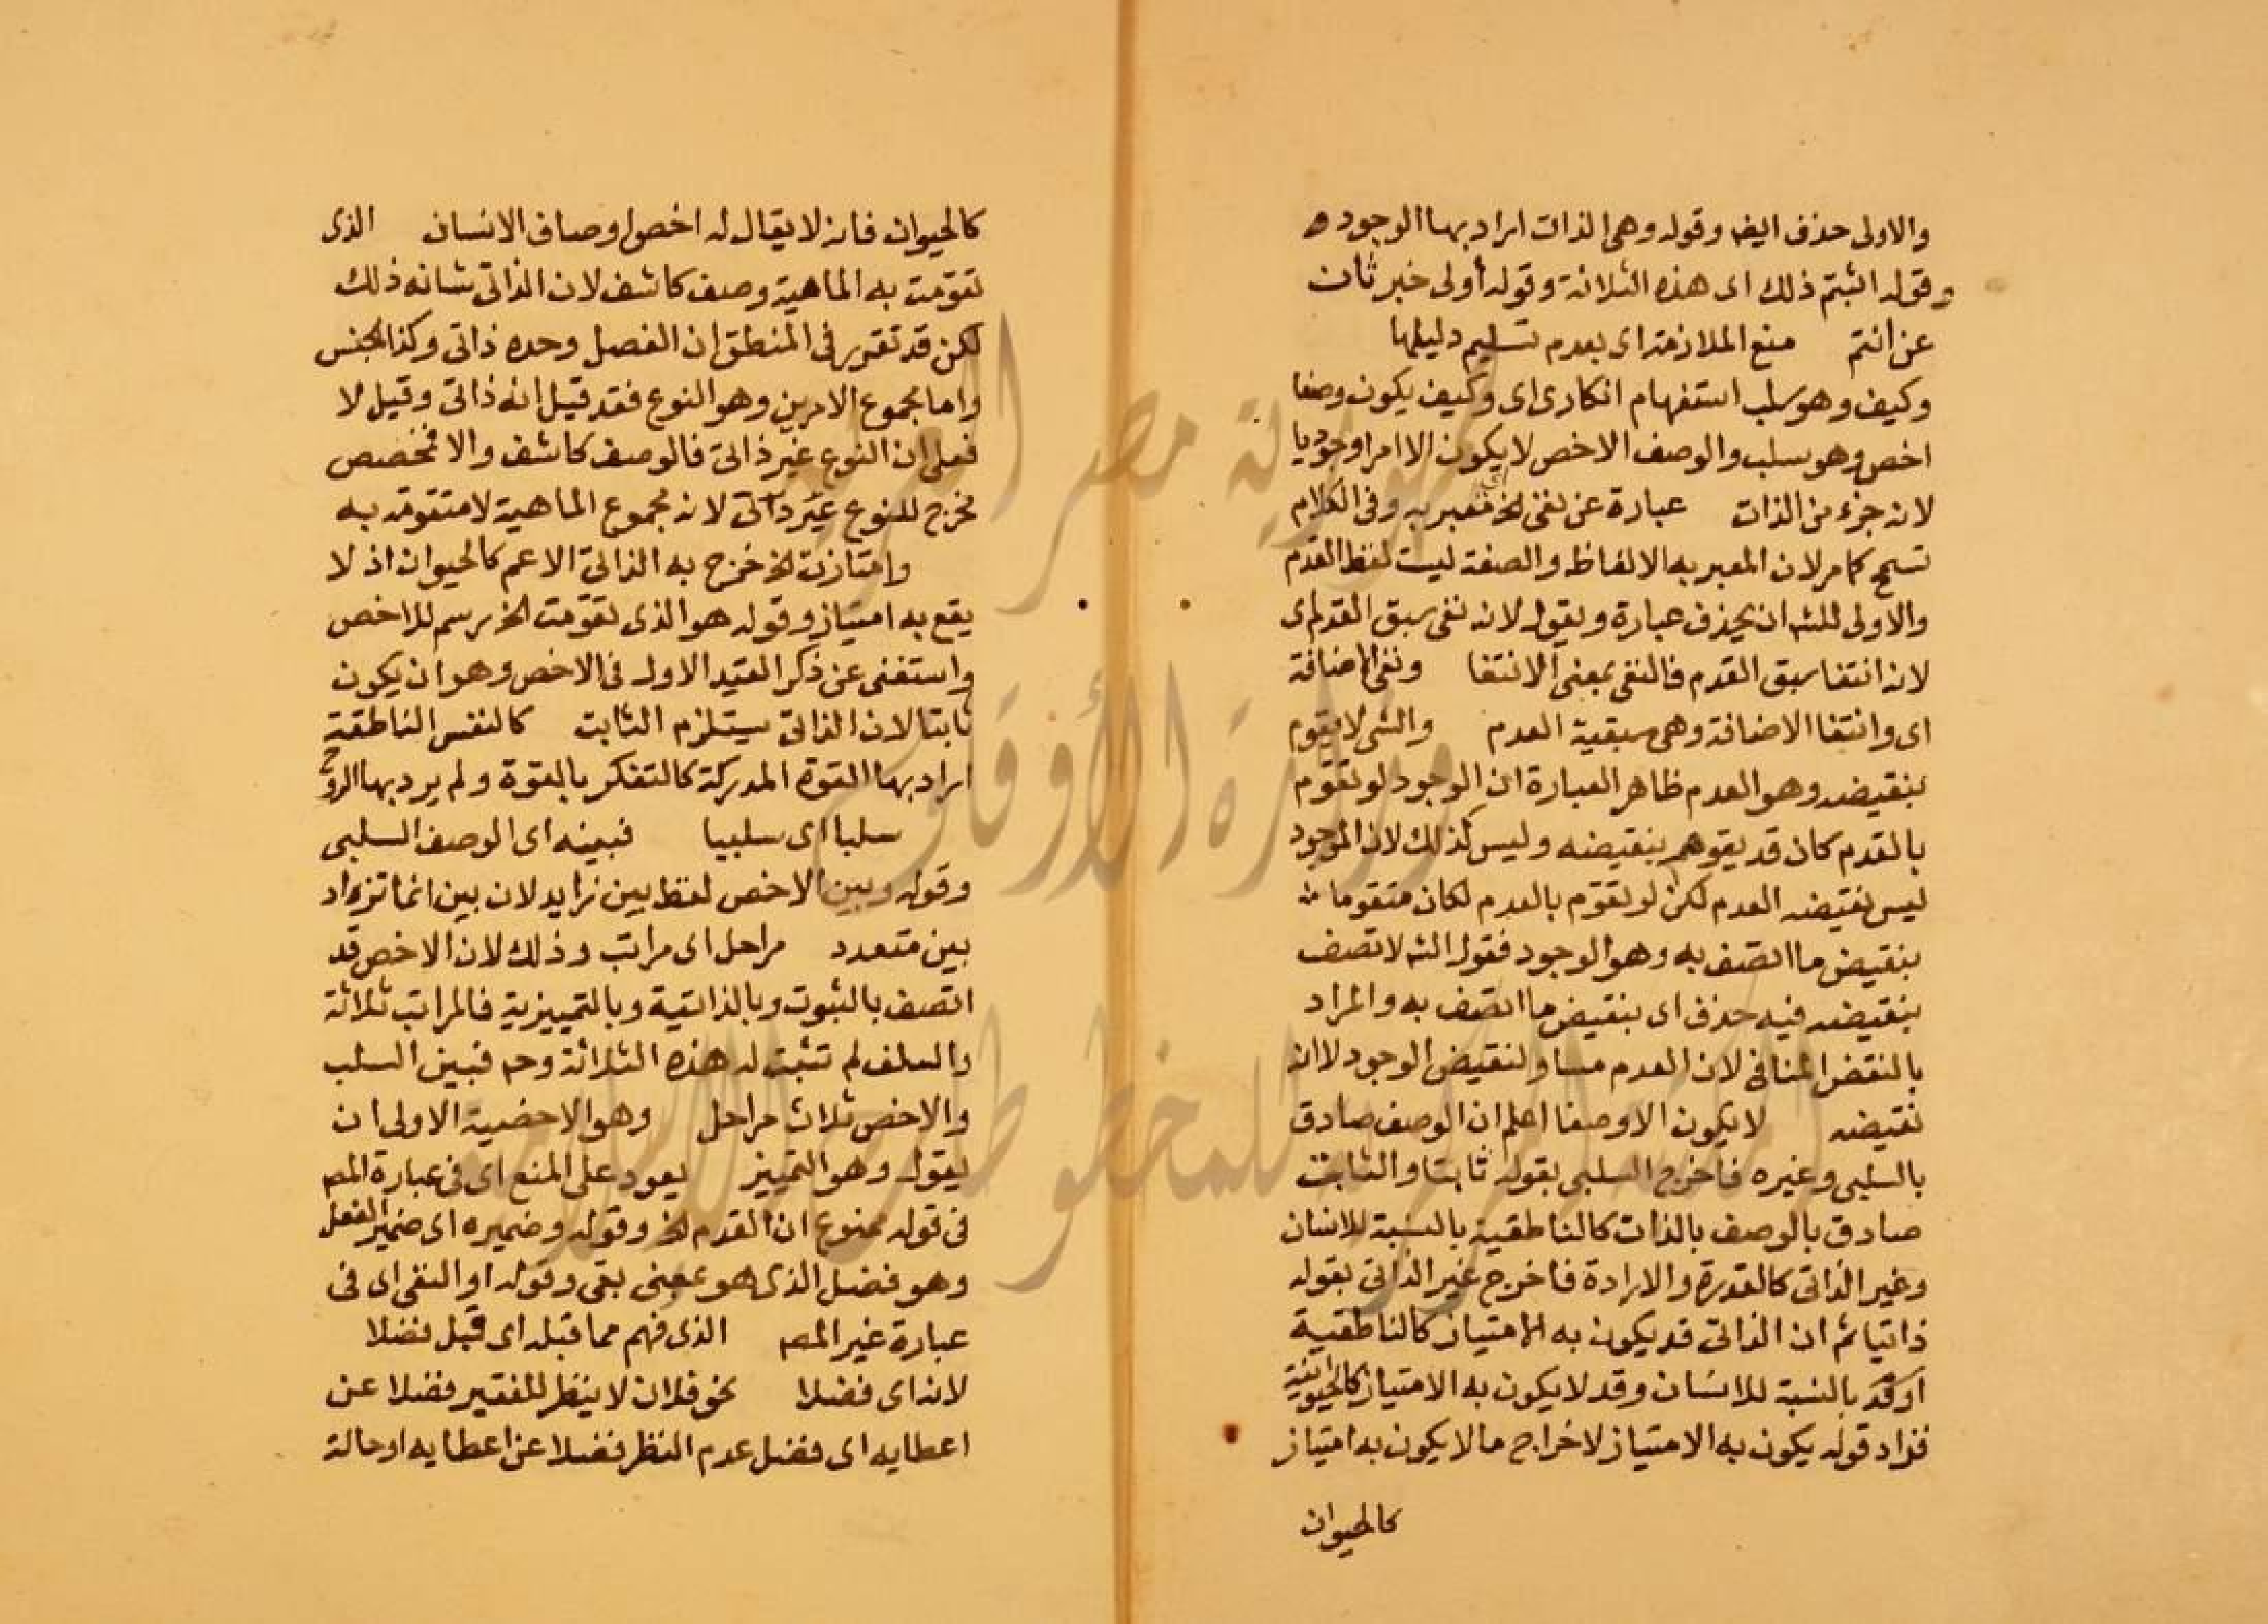 والاولى حذف ايض وقوله وهى الذات اراد بها الوجود ه
وقوله اثبتم ذلك اى هذه الثلاثة وقوله أولى خبر ثان
عن انتم منع الملازمة اى بعدم تسليم دليلها
وكيف وهو سلب استفهام انكارى اى وكيف يكون وصفا
اخص وهو سلب والوصف الاخص لا يكون الا امرا وجوديا
لانه جزء من الذات عبارة عن نفى الخ فعبر به وفى الكلام
تسمح كما مر لان المعبر به الالفاظ والصفة ليست لفظ القدم
والاولى للشه ان يحذف عبارة ويقول لانه نفى سبق العدم اى
لانه انتفا سبق العدم فالنفى بمعنى الانتفا ونفى الاضافة
اى وانتفا الاضافة وهى سبقية العدم والشى لا يقوم
بنقيضه وهو العدم ظاهر العبارة ان الوجود لو تقوم
بالقدم كان قد يقوم بنقيضه وليس كذلك لان الموجود
ليس نقيضه العدم لكن لو تقوم بالعدم لكان متقوما
بنقيض ما اتصف به وهو الوجود فقول الشه لاتصف
بنقيضه فيه حذف اى بنقيض ما اتصف به والمراد
بالنقض المنافى لان العدم مساو لنقيض الوجود لا انه
نقيضه لا يكون الا وصفا اعلم ان الوصف صادق
بالسلبى وغيره فاخرج السلبى بقوله ثابتا والثابت
صادق بالوصف بالذات كالناطقية بالنسبة للانسان
وغير الذاتى كالقدرة والارادة فاخرج غير الذاتى بقوله
ذاتيا ثم ان الذاتى قد يكون به الامتياز كالناطقية
بالنسبة للانسان وقد لا يكون به الامتياز كالحيوانية
فزاد قوله يكون به الامتياز لاخراج ما لا يكون به امتياز
كالحيوان
كالحيوان فانه لا يقال له اخص اوصاف الانسان الذى
تقومت به الماهية وصف كاشف لان الذاتى شانه ذلك
لكن قد تقرر فى المنطق ان الفصل وحده ذاتى وكذا الجنس
واما مجموع الامرين وهو النوع فقد قيل انه ذاتى وقيل لا
فعلى ان النوع غير ذاتى فالوصف كاشف والا فمخصص
مخرج للنوع غير ذاتى لانه مجموع الماهية لا متقومة به
وامتازت الخ خرج به الذاتى الاعم كالحيوان اذ لا
يقع به امتياز وقوله هو الذى تقومت الخ رسم للاخص
واستغنى عن ذكر القيد الاول فى الاخص وهو ان يكون
ثابتا لان الذاتى يستلزم الثابت كالنفس الناطقة
اراد بها القوة المدركة كالتفكر بالقوة ولم يرد بها الروح
سلبا اى سلبيا فبينه اى الوصف السلبى
وقوله وبين الاخص لفظ بين زايد لان بين انما تزاد
بين متعدد مراحل اى مراتب وذلك لان الاخص قد
اتصف بالثبوت وبالذاتية وبالتمييزية فالمراتب ثلاثة
والسلف لم تثبت له هذه الثلاثة وح فبين السلب
والاخص ثلاث مراحل وهو الاخصية الاولى ان
يقول وهو التمييز يعود على المنع اى فى عبارة المص
فى قوله ممنوع ان القدم الخ وقوله وضميره اى ضمير الفعل
وهو فضل الذى هو بمعنى بقى وقوله او النفى اى فى
عبارة غير المص الذى فهم مما قبله اى قبل فضلا
لانه اى فضلا نحو فلان لا ينظر للفقير فضلا عن
اعطايه اى فضل عدم النظر فضلا عن اعطايه او حالة